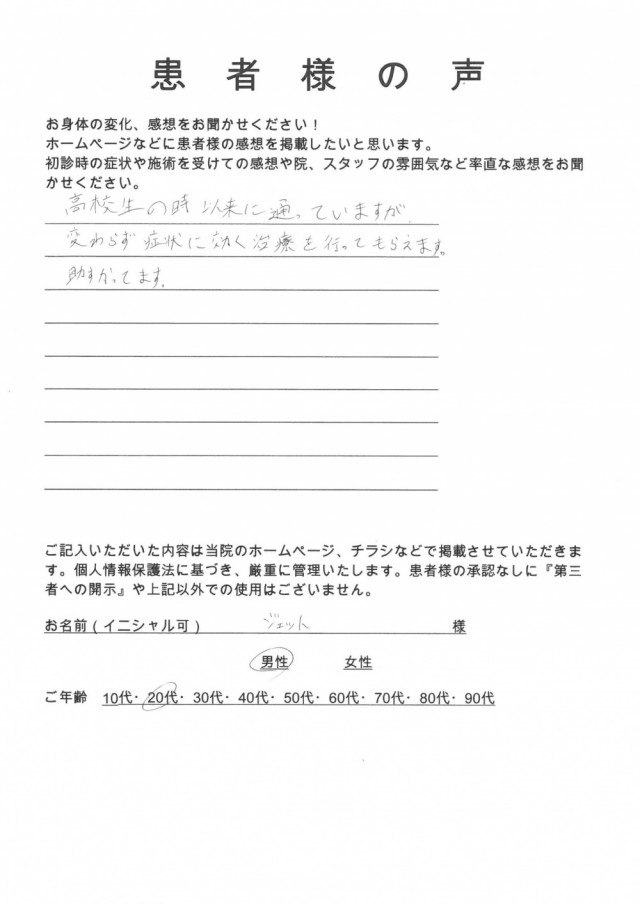 患者様の声
お身体の変化、感想をお聞かせください！
ホームページなどに患者様の感想を掲載したいと思います。
初診時の症状や施術を受けての感想や院、スタッフの雰囲気など率直な感想をお聞
かせください。
高校生の時以来に通っていますが、
変わらず症状に効く治療を行ってもらえます。
助すかってます。
ご記入いただいた内容は当院のホームページ、チラシなどで掲載させていただきま
す。個人情報保護法に基づき、厳重に管理いたします。患者様の承認なしに『第三
者への開示』や上記以外での使用はございません。
お名前（イニシャル可） ジェット 様
男性 女性
ご年齢 10代・20代・30代・40代・50代・60代・70代・80代・90代